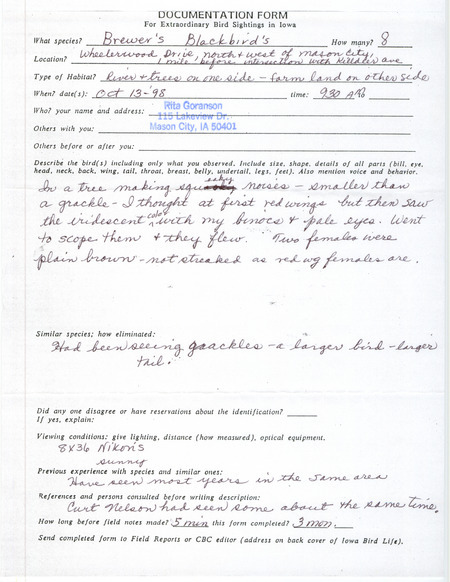 DOCUMENTATION FORM
For Extraordinary Bird Sightings in Iowa
What species? Brewer's Blackbird's How many? 8
Wheelerwood Drive, north & west of Mason City,
Location? 1 mile before intersection with Killdeer ave
Type of Habitat? River & trees on one side - farm land on other side
When? date(s): Oct 13-'98 time: 930 AM
Rita Goranson
Who? your name and address: 115 Lakeview Dr.
Others with you: Mason City, IA 50401
Others before or after you:
Describe the bird(s) including only what you observed. Include size, shape, details of all parts (bill, eye,
head, neck, back, wing, tail, throat, breast, belly, undertail, legs, feet). Also mention voice and behavior.
In a tree making squeaky noises - smaller than
a grackle - I thought at first redwings but then saw
the iridescent color with my binocs & pale eyes. Went
to scope them & they flew. Two females were
plain brown - not streaked as red wg females are.
Similar species; how eliminated:
Had been seeing graackles - a larger bird - larger
tail.
Did any one disagree or have reservations about the identification?
If yes, explain:
Viewing conditions: give lighting, distance (how measured), optical equipment.
8X36 Nikon's
sunny
Previous experience with species and similar ones:
Have seen most years in the same area
References and persons consulted before writing description:
Curt Nelson had seen some about the same time.
How long before field notes made? 5 min this form completed? 3 mon.
Send completed form to Field Reports or CBC editor (address on back cover of Iowa Bird Life).